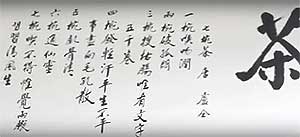 茶
七椀茶 唐 盧仝
一椀喉吻潤
兩椀破孤悶
三椀搜枯腸唯有文字
五千卷
四椀發輕汗平生不平
事盡向毛孔散
五椀肌骨清
六椀通仙靈
七椀喫不得惟覺兩腋
習習清風生